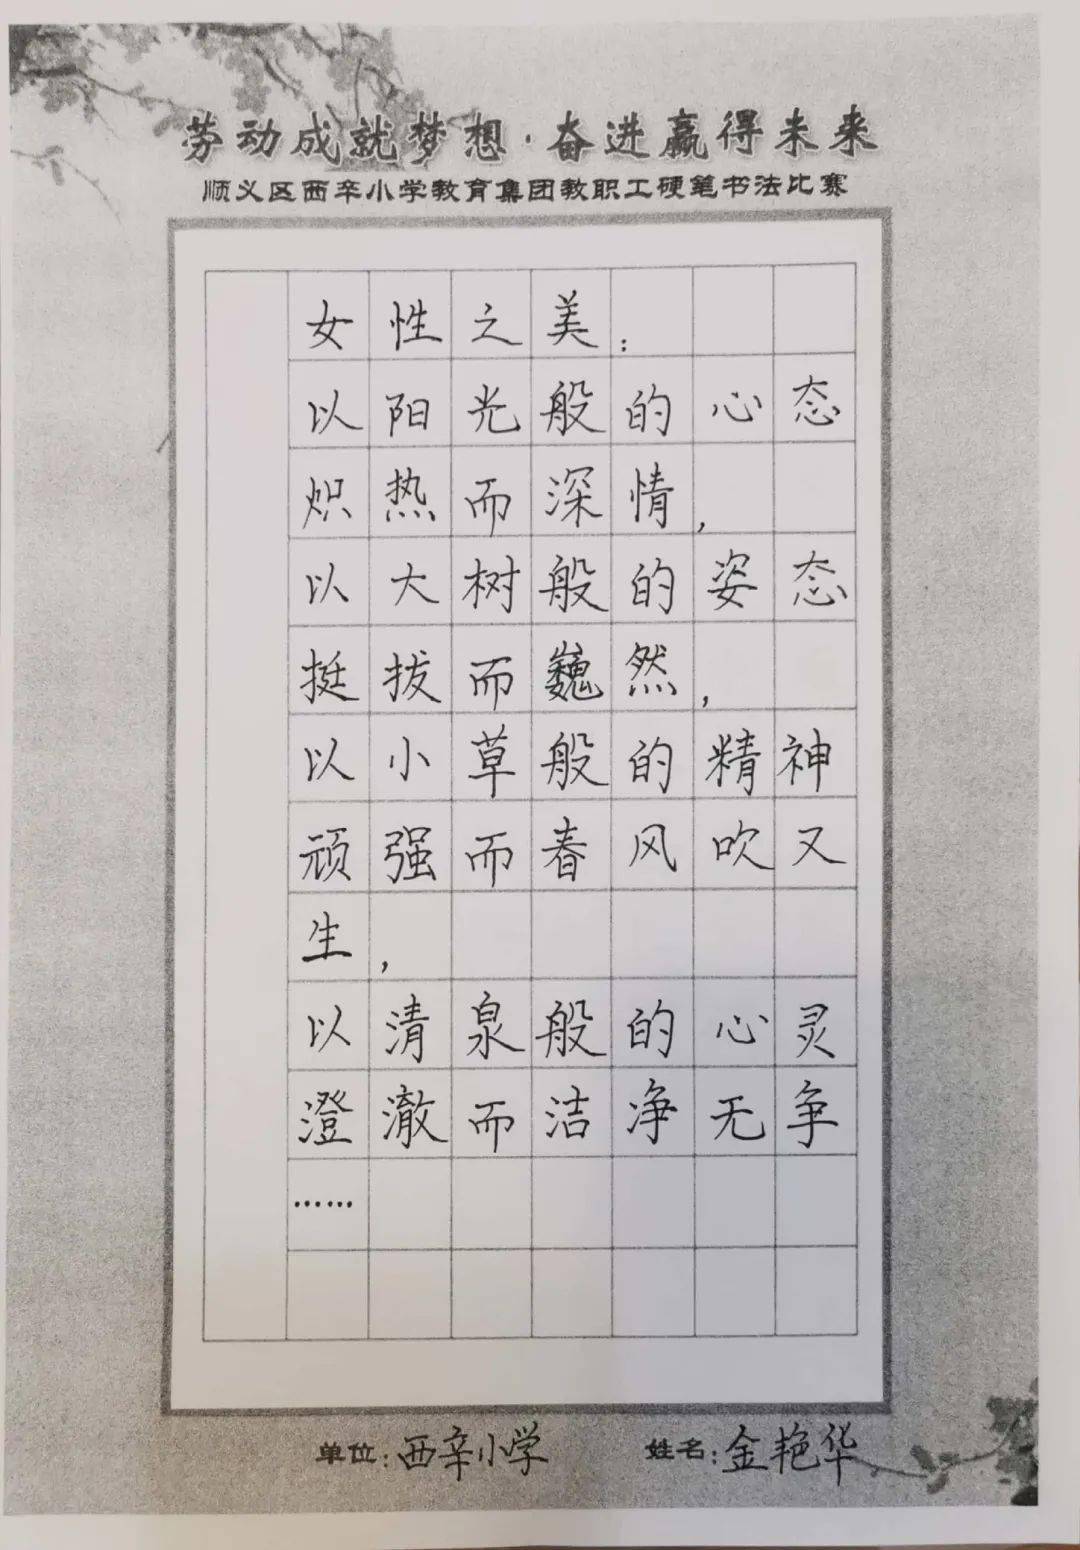 劳动成就梦想·奋进赢得未来
顺义区西辛小学教育集团教职工硬笔书法比赛
女性之美：
以阳光般的心态
炽热而深情，
以大树般的姿态
挺拔而巍然，
以小草般的精神
顽强而春风吹又
生，
以清泉般的心灵
澄澈而洁净无争
……
单位：西辛小学 姓名：金艳华